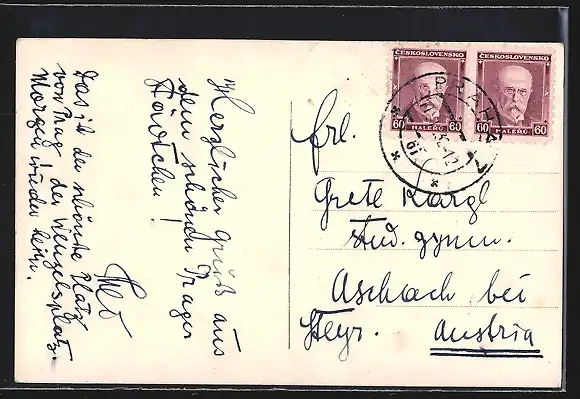 Das ist der schönste Platz
von Prag, der Wenzelsplatz.
Morgen wieder
Herzlicher Gruß aus
dem schönen Prager
Städtchen!
ČESKOSLOVENSKO
60 HALÉŘŮ 60
ČESKOSLOVENSKO
60 HALÉŘŮ 60
PRAHA
Frl.
Grete Kargl
stud. gymn.
Aschach bei
Steyr. Austria